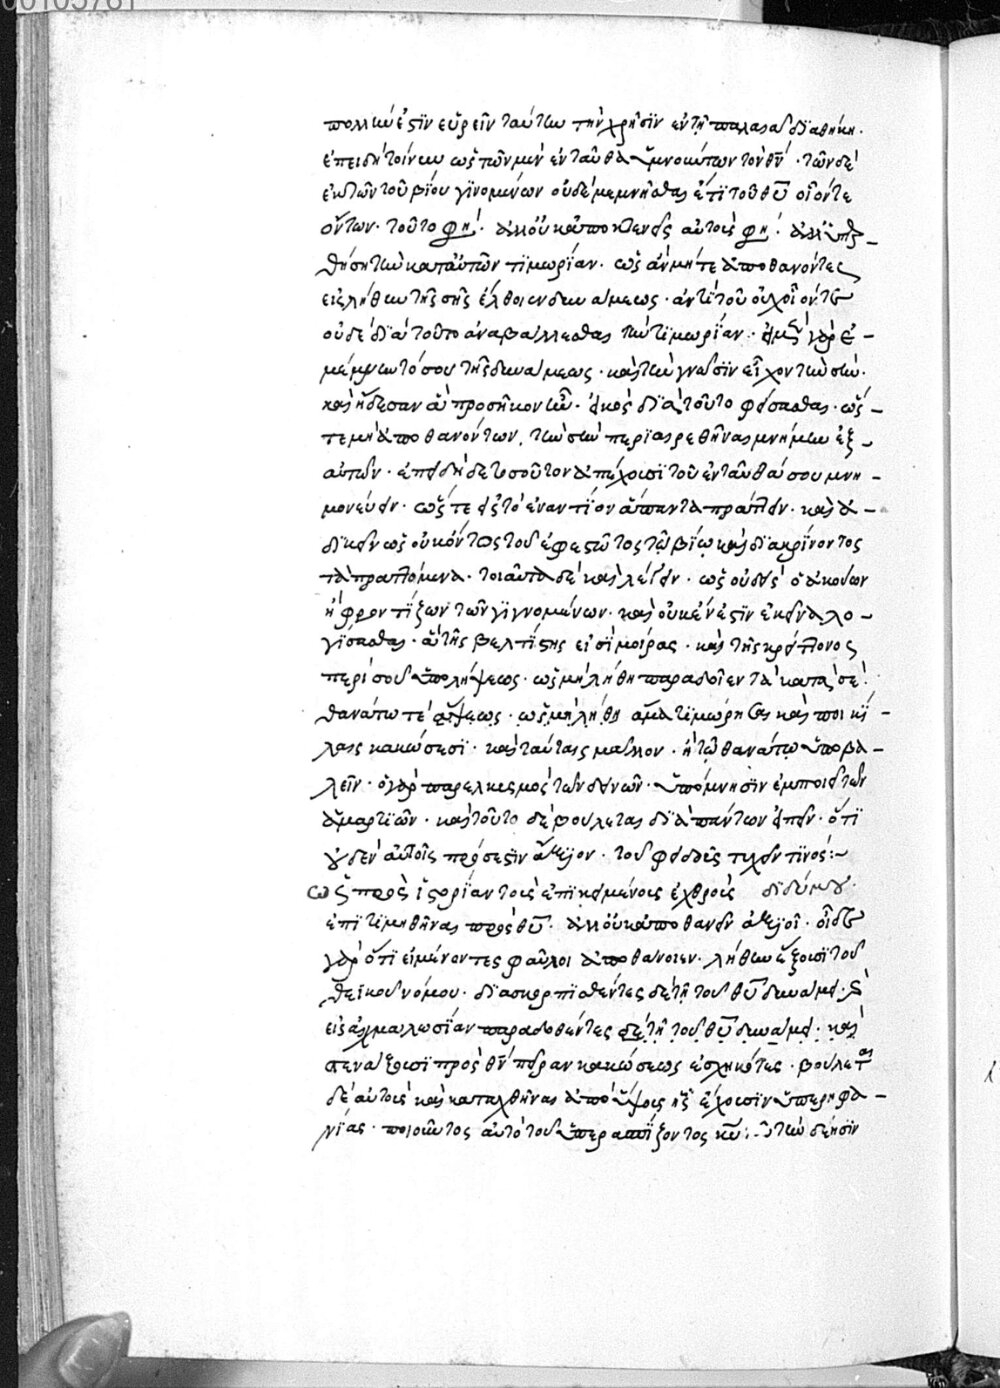 00105761
πολλήν ἐστιν εὑρεῖν ταύτην τὴν χρῆσιν ἐν τῇ παλαιᾷ διαθήκῃ.
ἐπειδὴ τοίνυν ὡς τῶν μὲν ἐνταῦθα ὑμνούντων τὸν θν. τῶν δὲ
ἐκ τῶν τοῦ βίου γινομένων οὐδὲ μεμνῆσθαι ἔτι τοῦ θυ οἵονται
ὄντων. τοῦτο φησί. ἀλλ' οὐκ ἀποκτενεῖς αὐτοὺς φησί. ἀλλ'
θήσῃ τὴν κατ' αὐτῶν τιμωρίαν. ὡς ἂν μήτε ἀποθανόντες
εἰς λήθην τῆς σῆς ἔλθοιεν δυνάμεως. ἀντὶ τοῦ
οὐδὲ διὰ τοῦτο ἀναβάλλεσθαι τὴν τιμωρίαν. γὰρ ἐ-
μέμνηντό σου τῆς δυνάμεως. καὶ τὴν γνῶσιν εἶχον τὴν σήν.
καὶ ᾔδεσαν ἃ προσῆκον ἦν. εἰκὸς διὰ τοῦτο φείσασθαι. ὥσ-
τε μὴ ἀποθανόντων, τὴν σὴν περιαιρεθῆναι μνήμην ἐξ
αὐτῶν. ἐπειδὴ δὲ τοσοῦτον ἀπέχουσι τοῦ ἐνταῦθά σου μνη-
μονεύειν. ὥστε εἰς τὸ ἐναντίον ἅπαντα πράττειν. καὶ ἀ-
δικεῖν ὡς οὐκ ὄντος τοῦ ἐφεστῶτος τῷ βίῳ καὶ διακρίνοντος
τὰ πραττόμενα. τοιαῦτα δὲ καὶ λέγειν. ὡς οὐδεὶς ὁ ἀκούων
ἢ φροντίζων τῶν γιγνομένων. καὶ οὐκ ἔνεστιν ἐκεῖνα λο-
γίσασθαι. ἃ τῆς βελτίστης εἰσὶ μοίρας. καὶ τῆς κρείττονος
περὶ σοῦ ὑπολήψεως. ὡς μὴ λήθῃ παραδοῖεν τὰ κατὰ σέ.
θανάτῳ τε ὡς μὴ λήθῃ ἅμα τιμώρησαι καὶ ποικί-
λαις κακώσεσι. καὶ ταύταις μᾶλλον. ἢ τῷ θανάτῳ ὑποβα-
λεῖν. ὁ γὰρ παρελκυσμὸς τῶν δεινῶν. ὑπόμνησιν ἐμποιεῖ τῶν
ἁμαρτιῶν. καὶ τοῦτο δὲ βούλεται διὰ πάντων εἰπεῖν. ὅτι
οὐδὲν αὐτοῖς πρόσεστιν ἄξιον. τοῦ φειδοῦς τυχεῖν τινός:~
ὡς πρὸς ἱστορίαν τοὺς ἐπικειμένοις ἐχθροῖς διδύμου.
ἐπιτιμηθῆναι πρὸς θυ. ἀλλ' οὐκ ἀποθανεῖν ἀξιοῖ. οἶδε
γὰρ ὅτι εἰ μένοντες φαῦλοι ἀποθάνοιεν. λήθην ἕξουσι τοῦ
θεϊκοῦ νόμου. διασκορπισθέντες δὲ τῇ τοῦ θυ δυνάμει. καὶ
εἰς αἰχμαλωσίαν παραδοθέντες δὲ τῇ τοῦ θυ δυνάμει. καὶ
στενάξουσι πρὸς θν πεῖραν κακώσεως ἐσχηκότες. βούλεται
δὲ αὐτοὺς καὶ καταχθῆναι ἀπὸ ὕψους ἧς ἔχουσιν ὑπερηφα-
νίας. ποιοῦντος αὐτὸ τοῦ ὑπερασπίζοντος κυ τὴν δέησιν